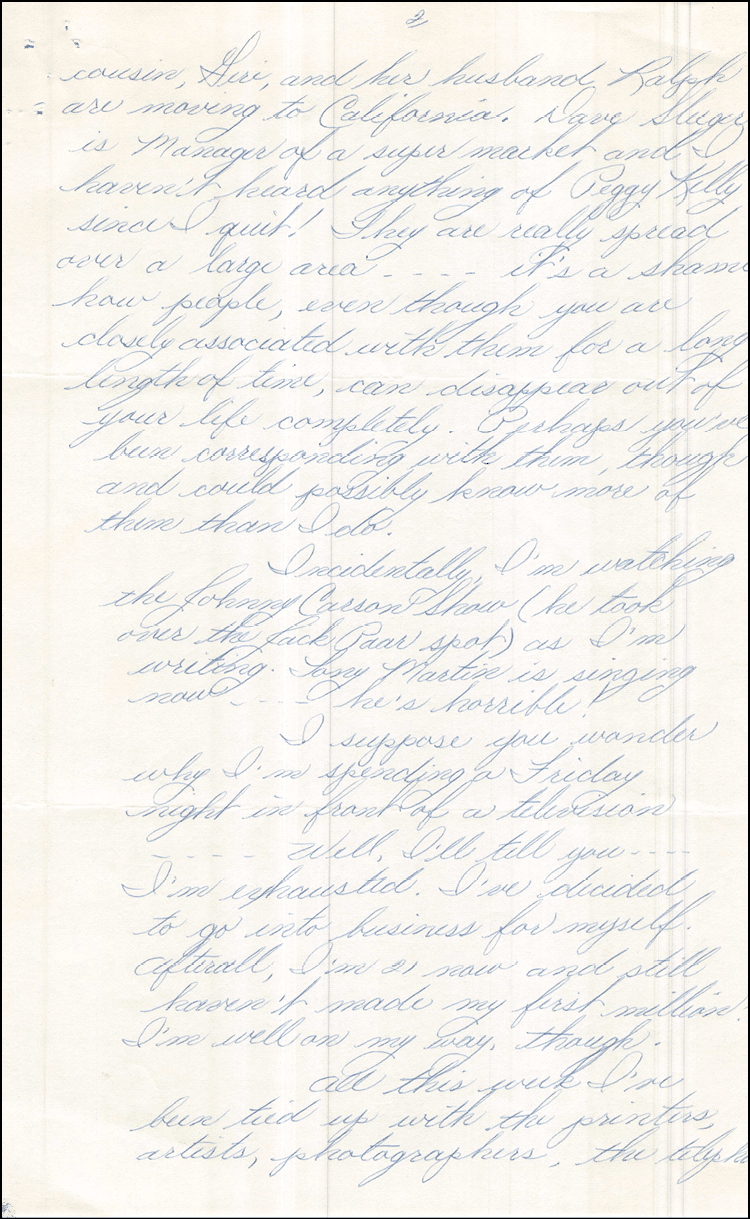 2
cousin, Geri, and her husband, Ralph
are moving to California. Dave
is Manager of a super market and I
haven't heard anything of Peggy Kelly
since I quit! They are really spread
over a large area - - - - it's a shame
how people, even though you are
closely associated with them for a long
length of time, can disappear out of
your life completely. Perhaps you've
been corresponding with them, though
and could possibly know more of
them than I do.
Incidentally, I'm watching
the Johnny Carson Show (he took
over the Jack Paar spot) as I'm
writing. Tony Martin is singing
now - - - - he's horrible!
I suppose you wonder
why I'm spending a Friday
night in front of a television
- - - - Well, I'll tell you - - - -
I'm exhausted. I've decided
to go into business for myself.
Afterall, I'm 21 now and still
haven't made my first million.
I'm well on my way, though.
All this week I've
been tied up with the printers,
artists, photographers, the teleph